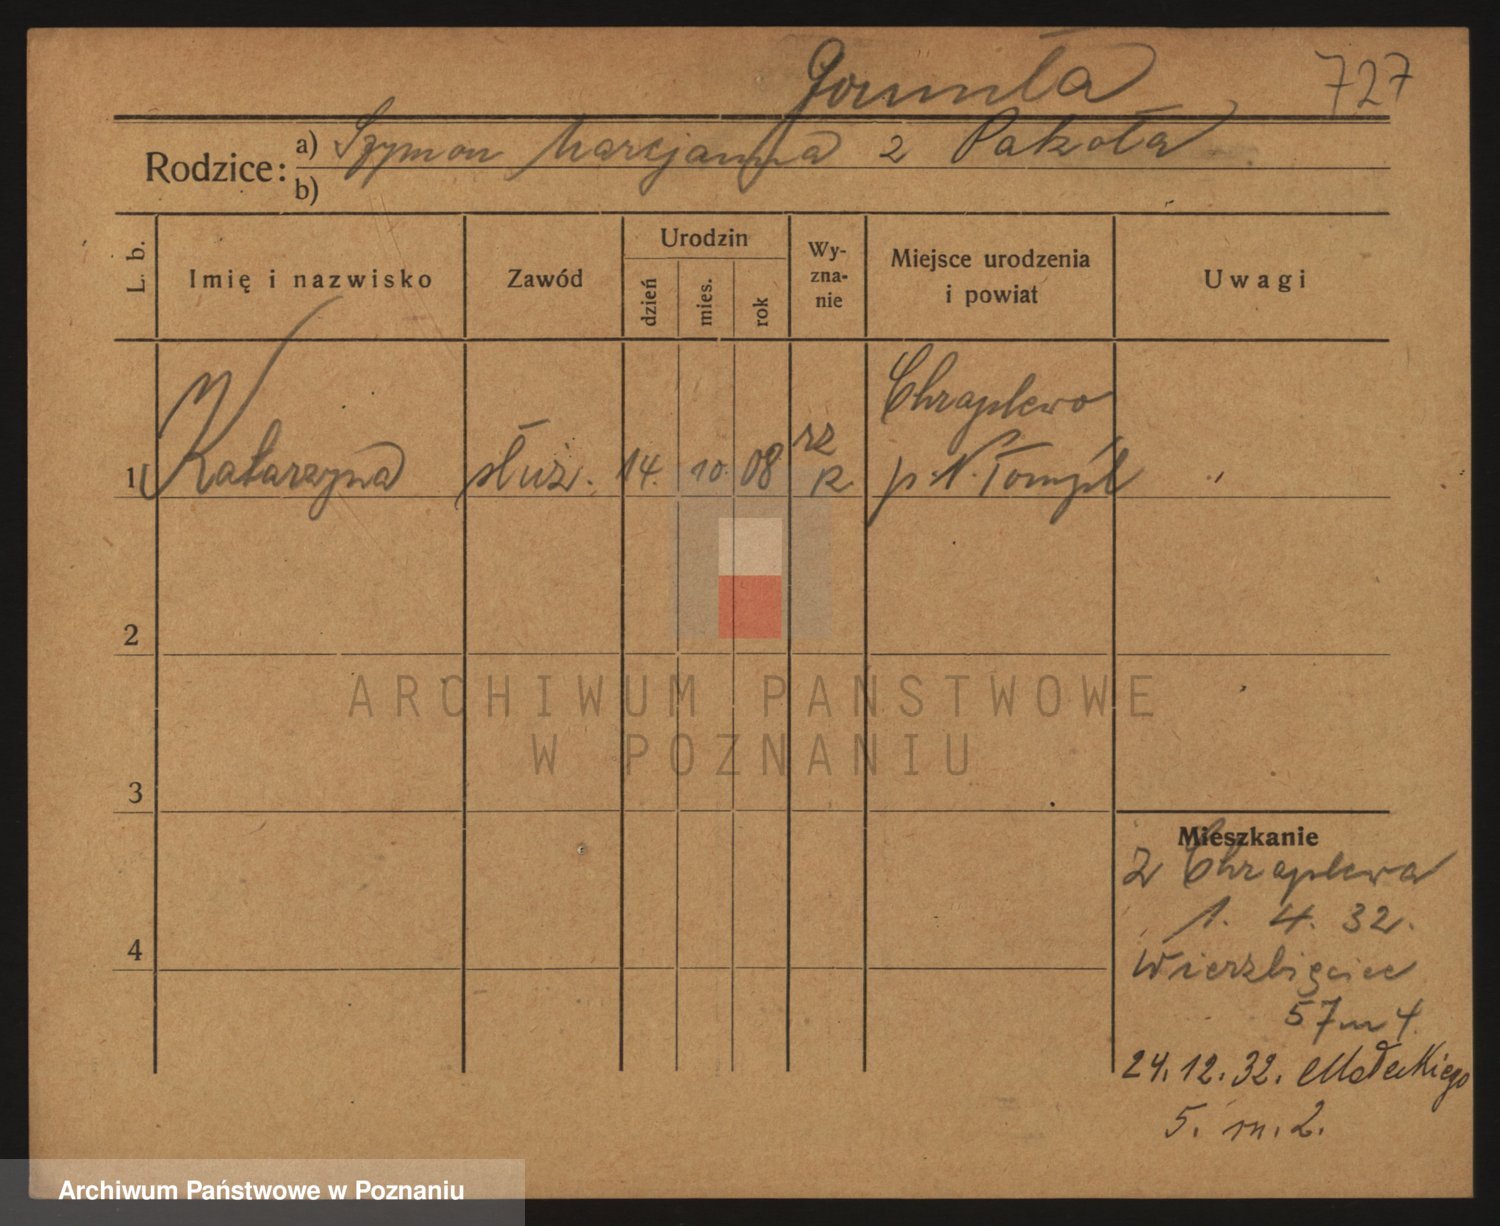 727
Rodzice:
a) Szymon Marcjanna z Pakoła
b)
L. b.
Imię i nazwisko
Zawód
Urodzin
dzień
mies.
rok
Wy-
zna-
nie
Miejsce urodzenia
i powiat
Uwagi
1 Katarzyna służ. 14. 10. 08 rz k. Chraplewo
p. N. Tomyśl
2
3
4
Mieszkanie
z Chraplewa
1. 4. 32.
Wierzbięcice
57 m 4.
24.12.32. Małeckiego
5. m. 2.
ARCHIWUM PAŃSTWOWE
W POZNANIU
Archiwum Państwowe w Poznaniu